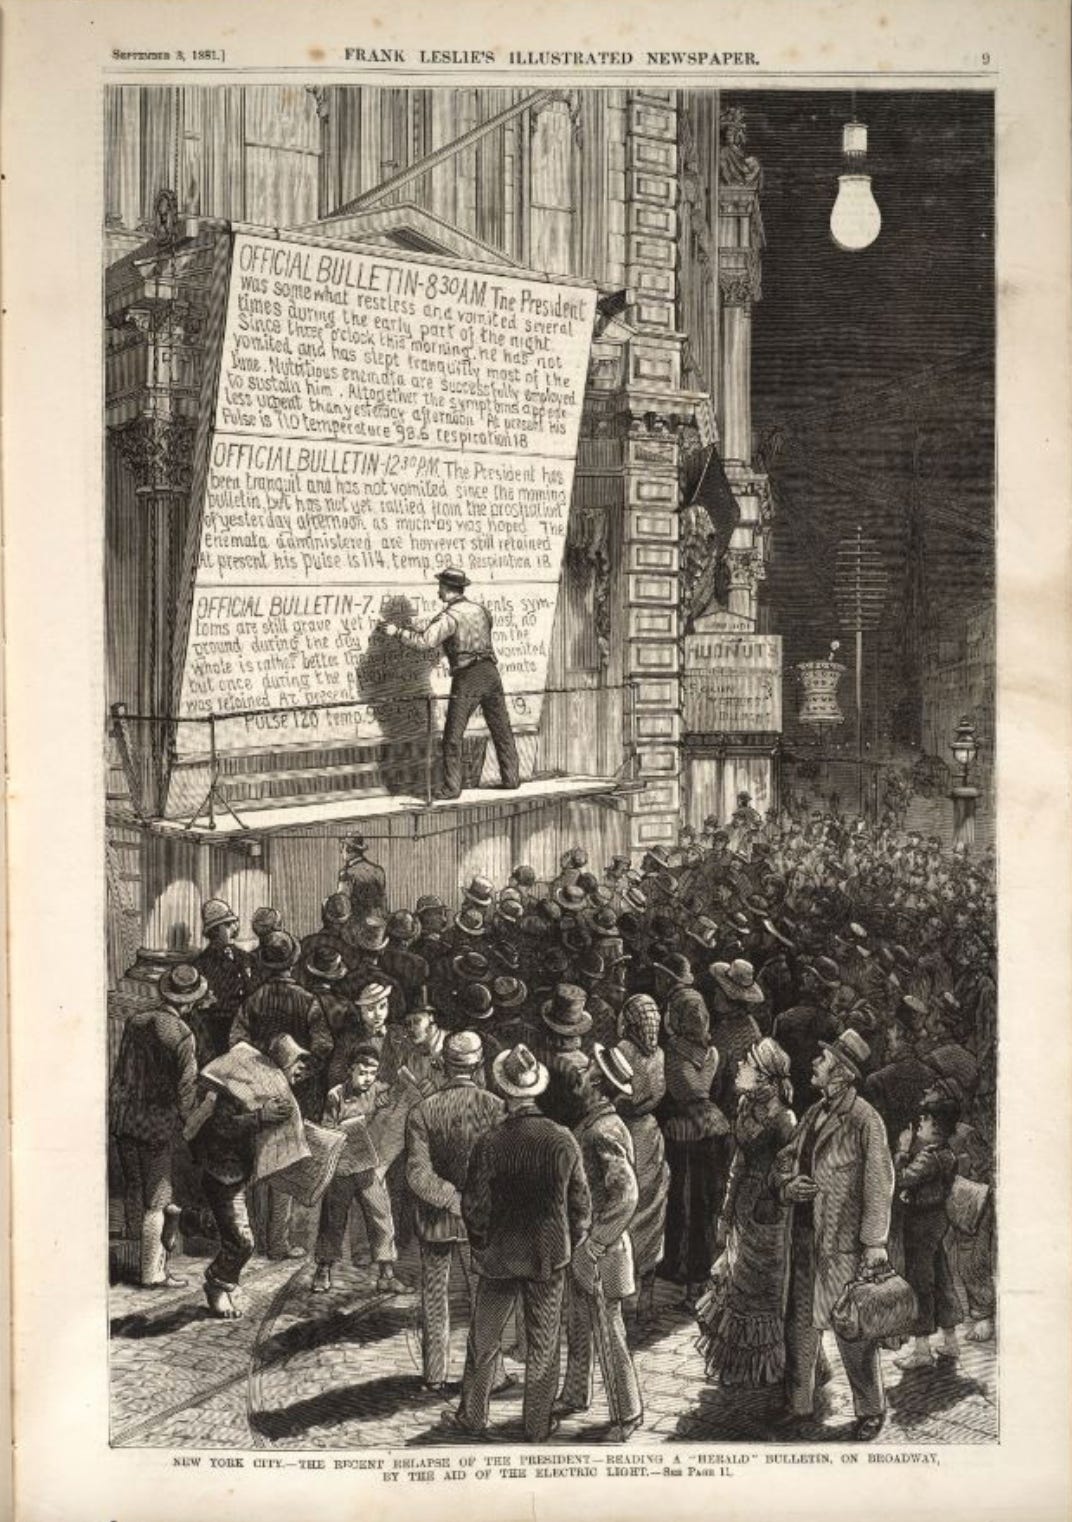 SEPTEMBER 3, 1881.]
FRANK LESLIE'S ILLUSTRATED NEWSPAPER.
9
OFFICIAL BULLETIN-8 30 A.M. The President
was somewhat restless and vomited several
times during the early part of the night.
Since three o'clock this morning he has not
vomited and has slept tranquilly most of the
time. Nutritious enemata are successfully employed
to sustain him. Altogether the symptoms appear
less urgent than yesterday afternoon At present his
Pulse is 110 temperature 98.6 respiration 18
OFFICIAL BULLETIN-12 30 P.M. The President has
been tranquil and has not vomited since the morning
bulletin, but has not yet rallied from the prostration
of yesterday afternoon as much as was hoped The
enemata administered are however still retained
At present his pulse is 114, temp. 98.3 Respiration 18
OFFICIAL BULLETIN-7. The sym-
toms are still grave yet he lost, no
ground during the day on the
whole is rather better vomited
but once during the
was retained At present
Pulse 120 temp. 19.
HUDNUT'S
NEW YORK CITY.—THE RECENT RELAPSE OF THE PRESIDENT—READING A "HERALD" BULLETIN, ON BROADWAY,
BY THE AID OF THE ELECTRIC LIGHT.—SEE PAGE 11.